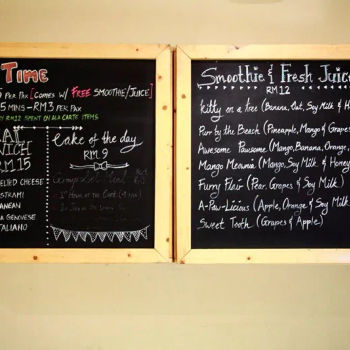 TIME
PER PAX [COMES W/ FREE SMOOTHIE/JUICE]
5 MINS - RM3 PER PAX
RM12 SPENT ON ALA CARTE ITEMS
WICH
RM15
ELTED CHEESE
ASTRAMI
ANEAN
A GENOVESE
ITALIANO
Cake of the day
RM 9
Smoothie & Fresh Juice
RM 12
Kitty on a tree (Banana, Oat, Soy Milk & Ho
Purr by the Beach (Pineapple, Mango & Grapes
Awesome Pawsome (Mango, Banana, Orange,
Mango Meownia (Mango, Soy Milk, & Honey
Furry Flair (Pear, Grapes & Soy Milk)
A-Paw-Licious (Apple, Orange & Soy Milk
Sweet Tooth (Grapes & Apple)